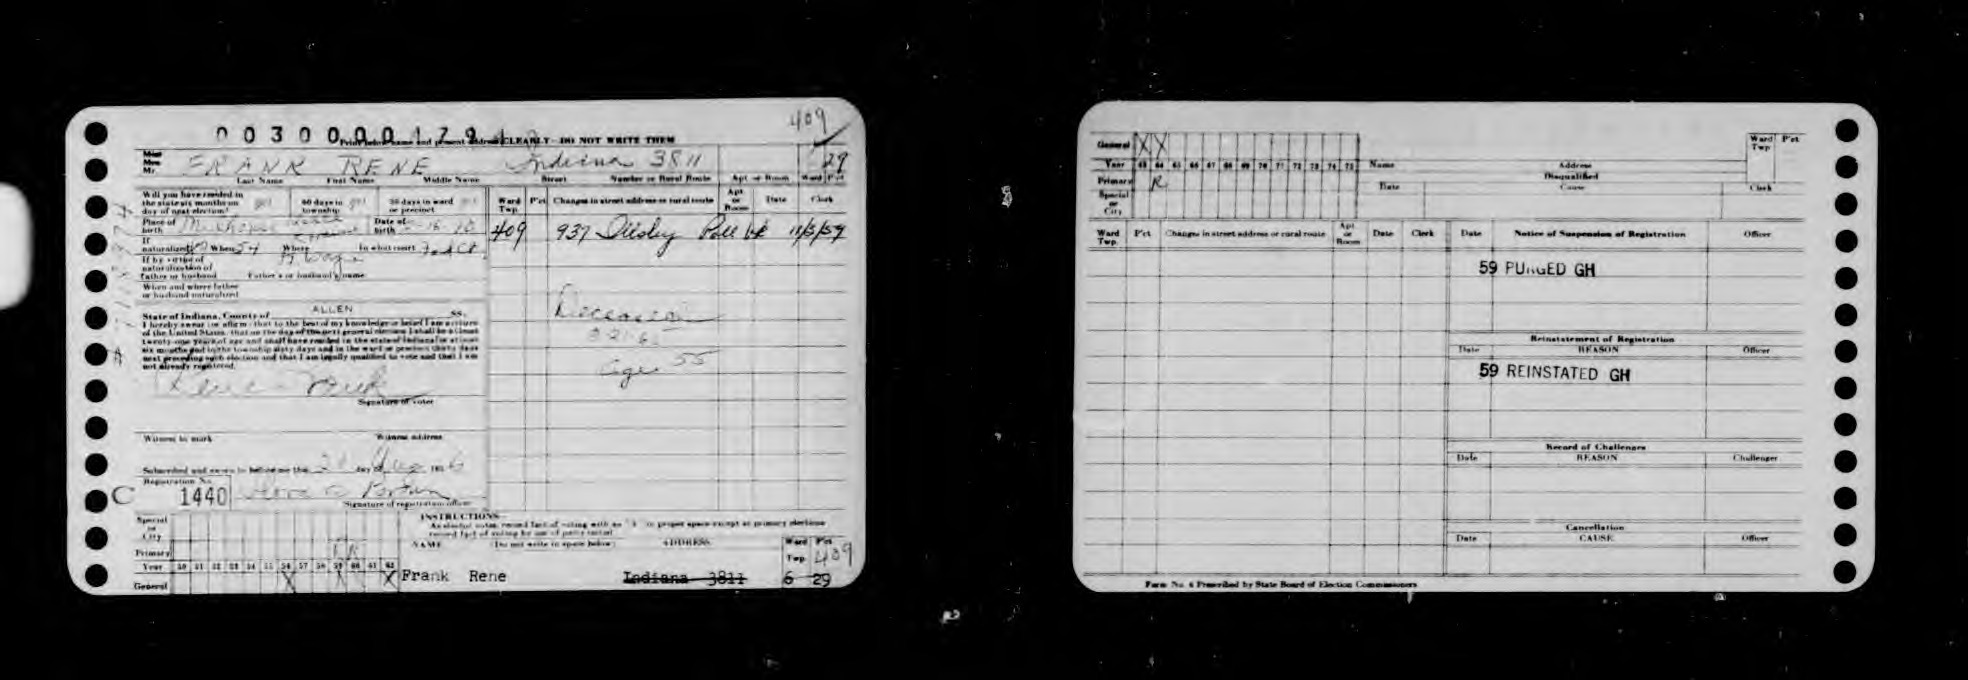 409
0030000179
Print below name and present address CLEARLY—DO NOT WRITE THEM
Miss
Mrs.
Mr. FRANK RENE Indiana 3811 29
Last Name First Name Middle Name Street Number or Rural Route Apt. or Room Ward P'ct
Will you have resided in the state six months on day of next election? yes 60 days in township yes 30 days in ward or precinct
Ward Twp. P'ct Changes in street address or rural route Apt. or Room Date Clerk
Place of birth Date of birth
409 937 Illsley Poll bk 11/3/59
If naturalized When 54 Where Ft Wayne In what court Fed Ct.
If by virtue of naturalization of father or husband Father's or husband's name
When and where father or husband naturalized
State of Indiana, County of ALLEN ss.
I hereby swear (or affirm) that to the best of my knowledge or belief I am a citizen
of the United States, that on the day of the next general election I shall be at least
twenty-one years of age and shall have resided in the state of Indiana for at least
six months and in the township sixty days and in the ward or precinct thirty days
next preceding such election and that I am legally qualified to vote and that I am
not already registered.
Deceased
Age 55
Signature of voter
Witness to mark Witness address
Subscribed and sworn to before me this day of Aug 1956
Registration No.
C 1440
Signature of registration officer
INSTRUCTIONS—
An election notes, record fact of voting with an "X" in proper space except at primary elections
record fact of voting by use of party initial
Special or City
NAME (Do not write in space below) ADDRESS Ward Twp. P'ct 409
Primary R R
Year 50 51 52 53 54 55 56 57 58 59 60 61 62
General X X X
Frank Rene Indiana 3811 6 29
General X X
Year 63 64 65 66 67 68 69 70 71 72 73 74 75
Primary R
Special or City
Name Address Ward Twp P'ct
Disqualified
Date Cause Clerk
Ward Twp. P'ct Changes in street address or rural route Apt. or Room Date Clerk
Date Notice of Suspension of Registration Officer
59 PURGED GH
Reinstatement of Registration
Date REASON Officer
59 REINSTATED GH
Record of Challenges
Date REASON Challenger
Cancellation
Date CAUSE Officer
Form No. 6 Prescribed by State Board of Election Commissioners